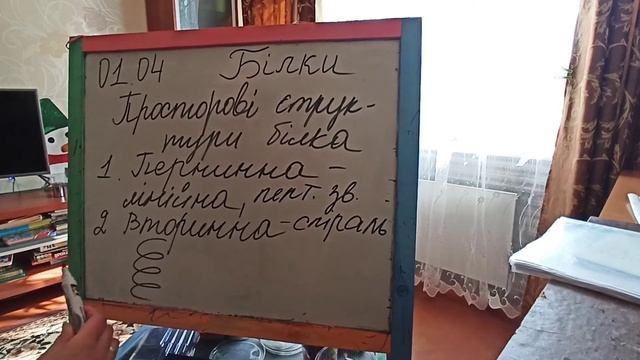 01.04 Білки
Просторові струк-
тури білка
1. Первинна -
лінійна, пепт. зв.
2 Вторинна - спіраль